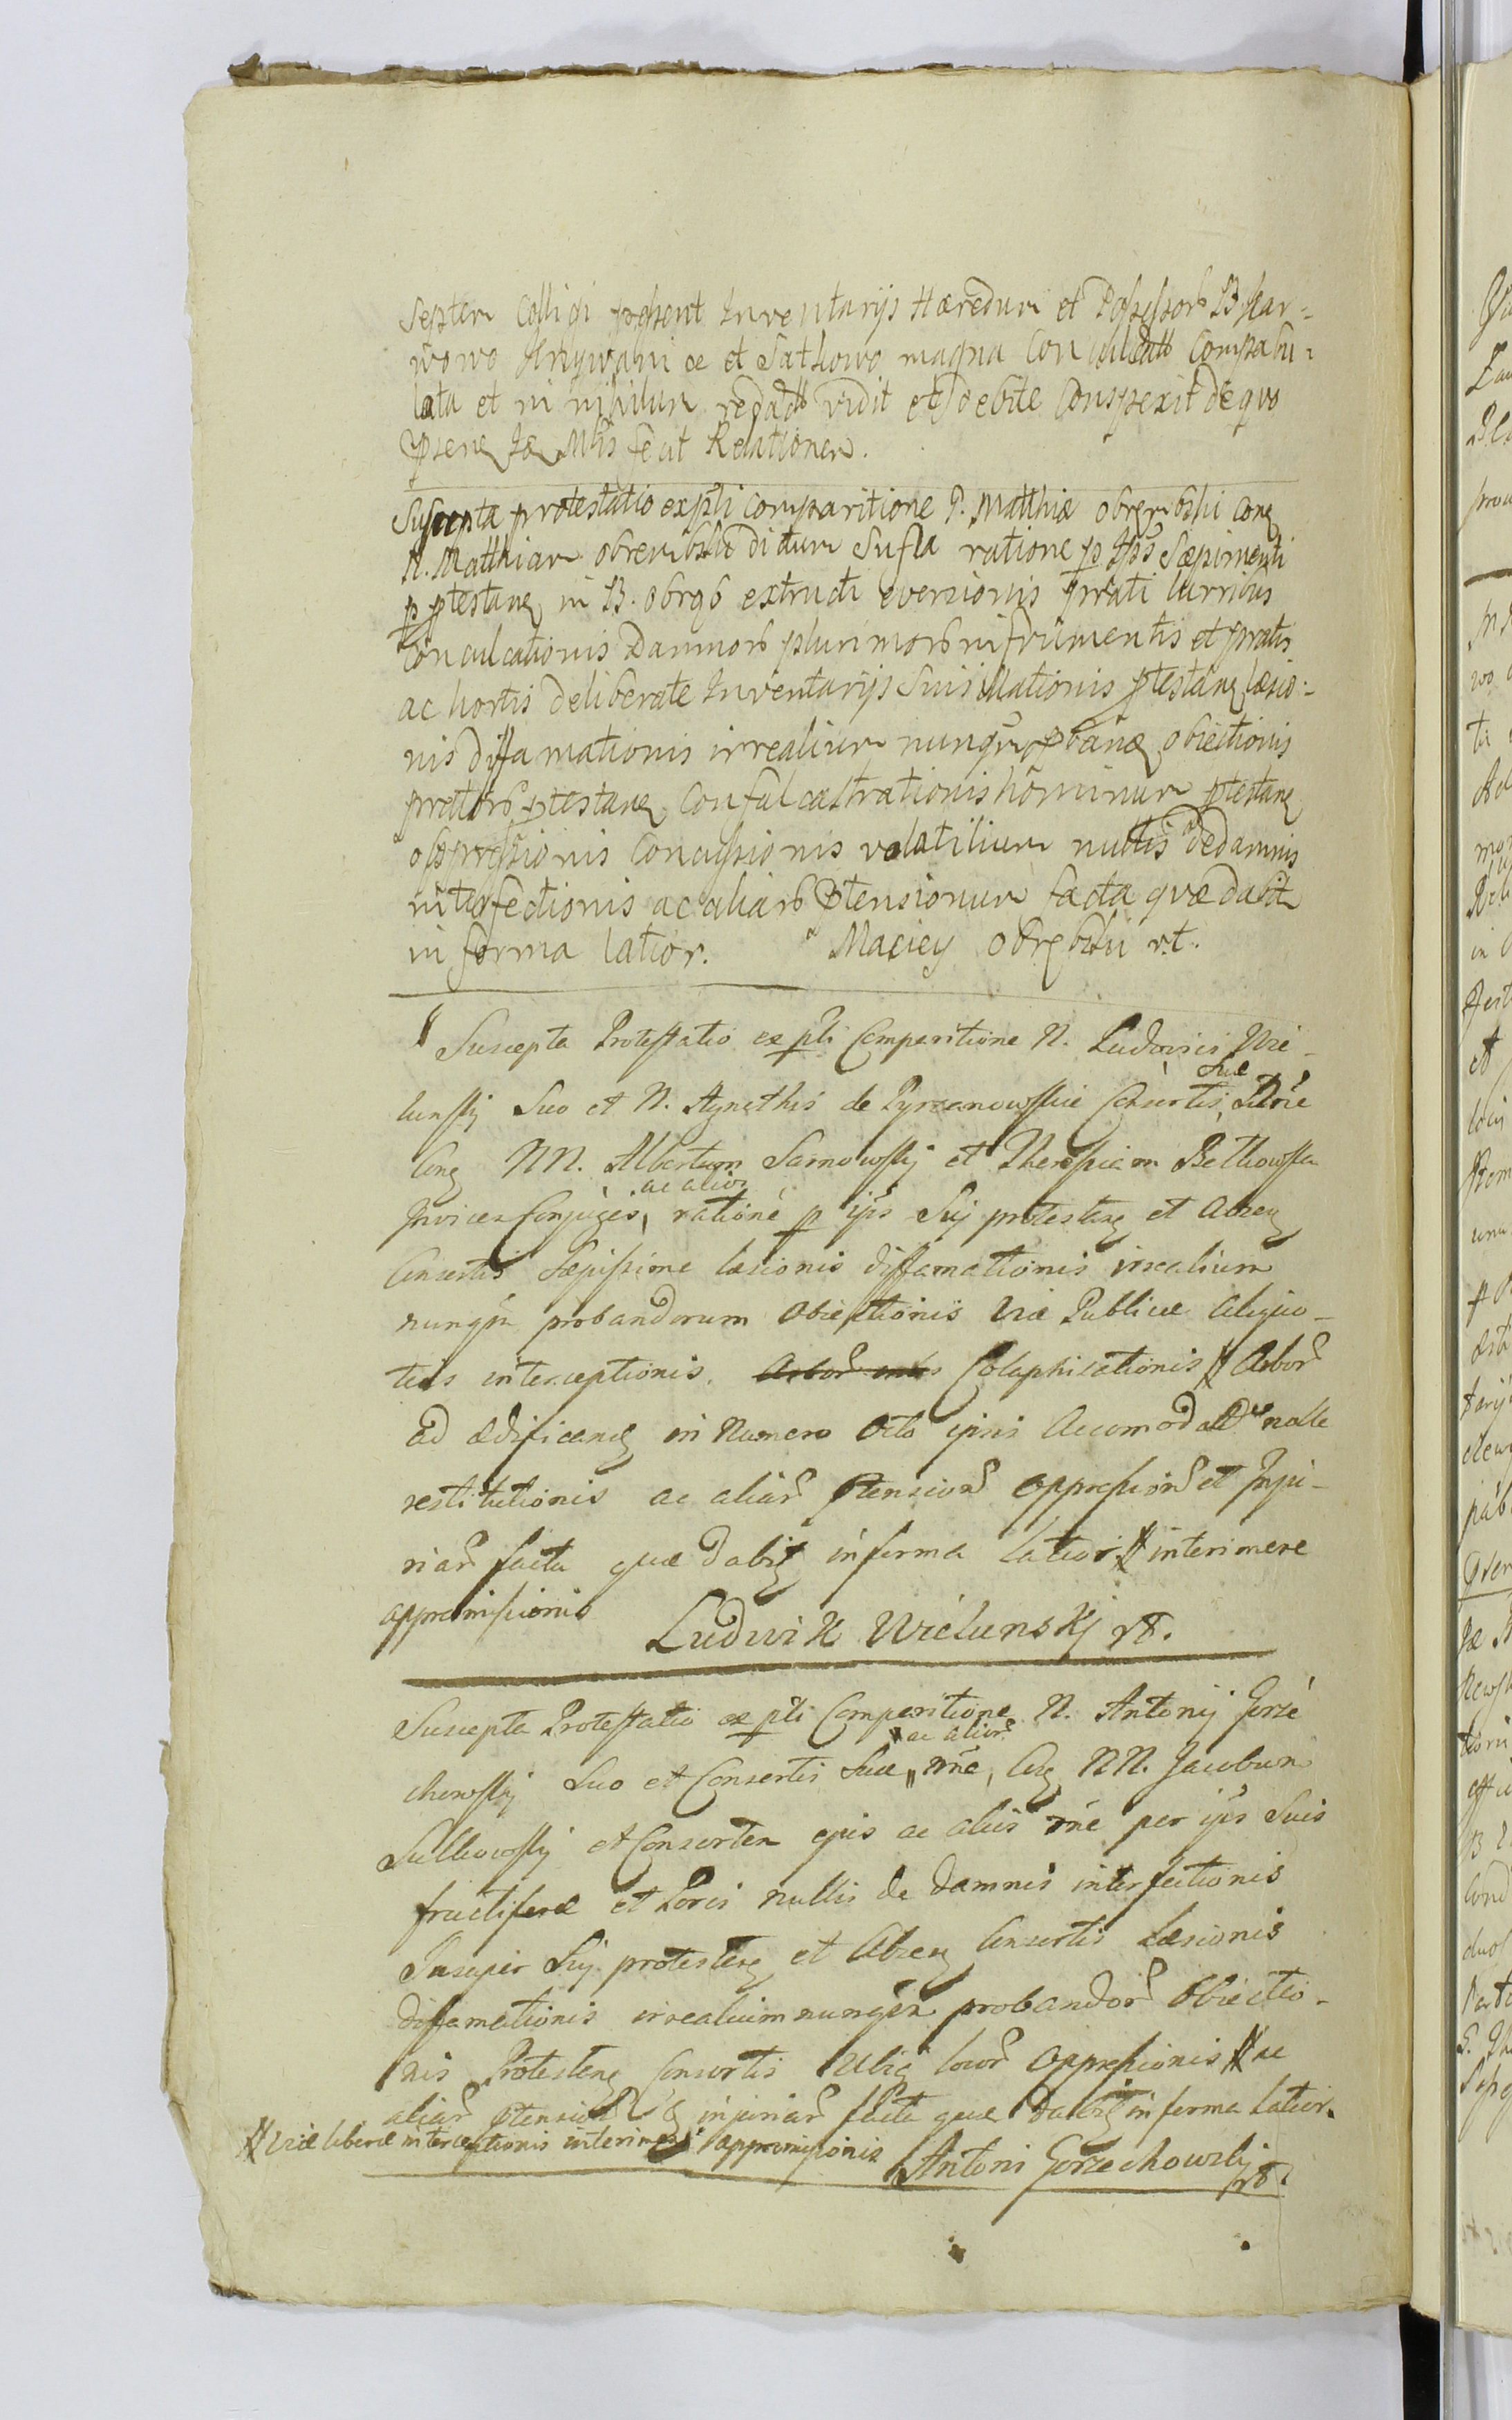 Septem Colligi possent Inventarijs Hæredum et Possessorb B Skar=
wowo Krzywanice et Sathowo magna Conculcatt Compabu=
lata et in nihilum redactt vidit et debite Conspexit de quo
psenq Ice Mtris fecit Relationem.
Suscepta protestatio ex pti comparitione P. Matthiæ obrembski cong
N. Matthiam obrembski dictum Sufla ratione p Ipss Sæpimenti
p ptestang in B. obrgb extructi eversionis prati curribus
Conculcationis Damnorb plurimorb in frumentis et pratis
ac hortis deliberate Inventarijs Suis illationis ptestang læsio=
nis diffamationis irrealium nunqm pbang obiectionis
pratorb ptestang Confalcastrationis hominum ptestang
oppressionis Concussionis volatilium nullis de damnis
interfectionis ac aliarb ptensionum facta quæ dabit
in forma latior. Maciey Obrębski rt.
Suscepta Protestatio ex pti Comparitione N. Ludovici Wie-
lunskj Suo et N. Agnethis de Pyrzanowskie Consortis, Suæ Nrie
Cong NN. Albertum Sarnowskj et Theresiam Betkowska
Invicem Conjuges, ac alior ratione p ijs Suj protestang et Absen
Consortis Sæpissime læsionis diffamationis irrealium
nunqm probandorum Obiectionis Viæ Publicæ aliquo-
ties interceptionis. Colaphisationis # Arbor
ad ædificand in Numero Octo ipsis Accomodat nolle
restitutionis ac aliar ptension oppression et Inju-
riar facta quæ dabit in forma latiori # interimere
appromissionis Ludwik Wielunskj rt.
Suscepta Protestatio ex pti Comparitione N. Antonij Gorze
chowskj Suo et Consortis Suæ ac alior nrie, Cong NN. Jacobum
Sulkowskj et Consortem ejus ac alios rne per ijs Suis
fructiferæ et Porci nullis de damnis interfectionis
Insuper Suj protestang et Absen Consortis Læsionis
diffamationis irrealium nunqm probandor Obiectio-
nis Protestang Consortis Ubiq locor oppressionis # ac
aliar ptension et injuriar facta quæ dabit in forma latior.
# viæ liberæ interceptionis interimere appromissionis Antoni Gorzechowskj
rt.